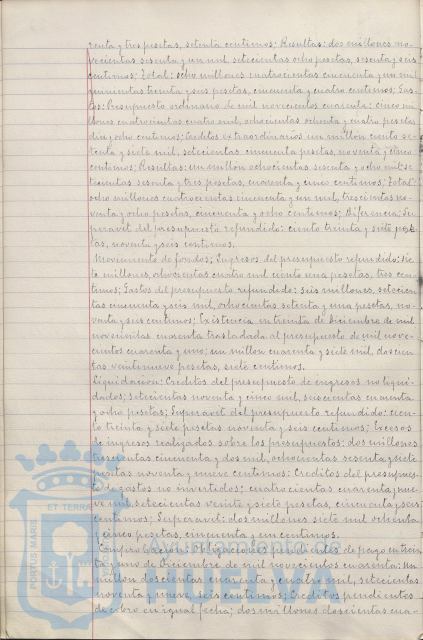 renta y tres pesetas, setenta centimos; Resultas: dos millones no-
vecientas sesenta y un mil, setecientas ocho pesetas, sesenta y seis
centimos; Total: ocho millones cuatrocientas cincuenta y un mil
quinientas treinta y seis pesetas, cincuenta y cuatro centimos; Gas-
tos: Presupuesto ordinario de mil novecientos cuarenta: cinco mi-
llones cuatrocientas cuatro mil, ochocientas ochenta y cuatro pesetas
diez y ocho centimos; Creditos extraordinarios un millon ciento se-
tenta y siete mil, setecientas cincuenta pesetas, noventa y cinco
centimos; Resultas: un millon ochocientas sesenta y ocho mil se-
tecientas sesenta y tres pesetas, cuarenta y cinco centimos; Total:
ocho millones cuatrocientas cincuenta y un mil, trescientas no-
venta y ocho pesetas, cincuenta y ocho centimos; Diferencia; Su-
peravit del presupuesto refundido: ciento treinta y siete pese-
tas, noventa y seis centimos.
Movimiento de fondos; Ingresos del presupuesto refundido: Sie-
te millones, ochocientas cuatro mil ciento una pesetas, tres cen-
timos; Gastos del presupuesto refundido: seis millones, setecien-
tas cincuenta y seis mil, ochocientas setenta y una pesetas, no-
venta y seis centimos; Existencia en treinta de Diciembre de mil
novecientos cuarenta trasladada al presupuesto de mil nove-
cientos cuarenta y uno: un millon cuarenta y siete mil, doscien-
tas veintinueve pesetas, siete centimos.
Liquidacion: Creditos del presupuesto de ingresos no liqui-
dados; setecientas noventa y cinco mil, seiscientas cuarenta
y ocho pesetas; Superavit del presupuesto refundido: cien-
to treinta y siete pesetas noventa y seis centimos; Excesos
de ingresos realizados sobre los presupuestos: dos millones
trescientas cincuenta y dos mil, ochocientas sesenta y siete
pesetas noventa y nueve centimos: Creditos del presupues-
to de gastos no invertidos; cuatrocientas cuarenta y nue-
ve mil, setecientas veinte y siete pesetas, cincuenta y seis
centimos; Superavit: dos millones siete mil ochenta
y cinco pesetas, cincuenta y un centimos.
Comprobacion: Obligaciones pendientes de pago en trein-
ta y uno de Diciembre de mil novecientos cuarenta: Un
millon doscientas cuarenta y cuatro mil, setecientas
noventa y nueve, seis centimos; Creditos pendientes
de cobro en igual fecha; dos millones doscientas cua-
PORTUS MARIE
ET TERRA
Ayuntamiento de